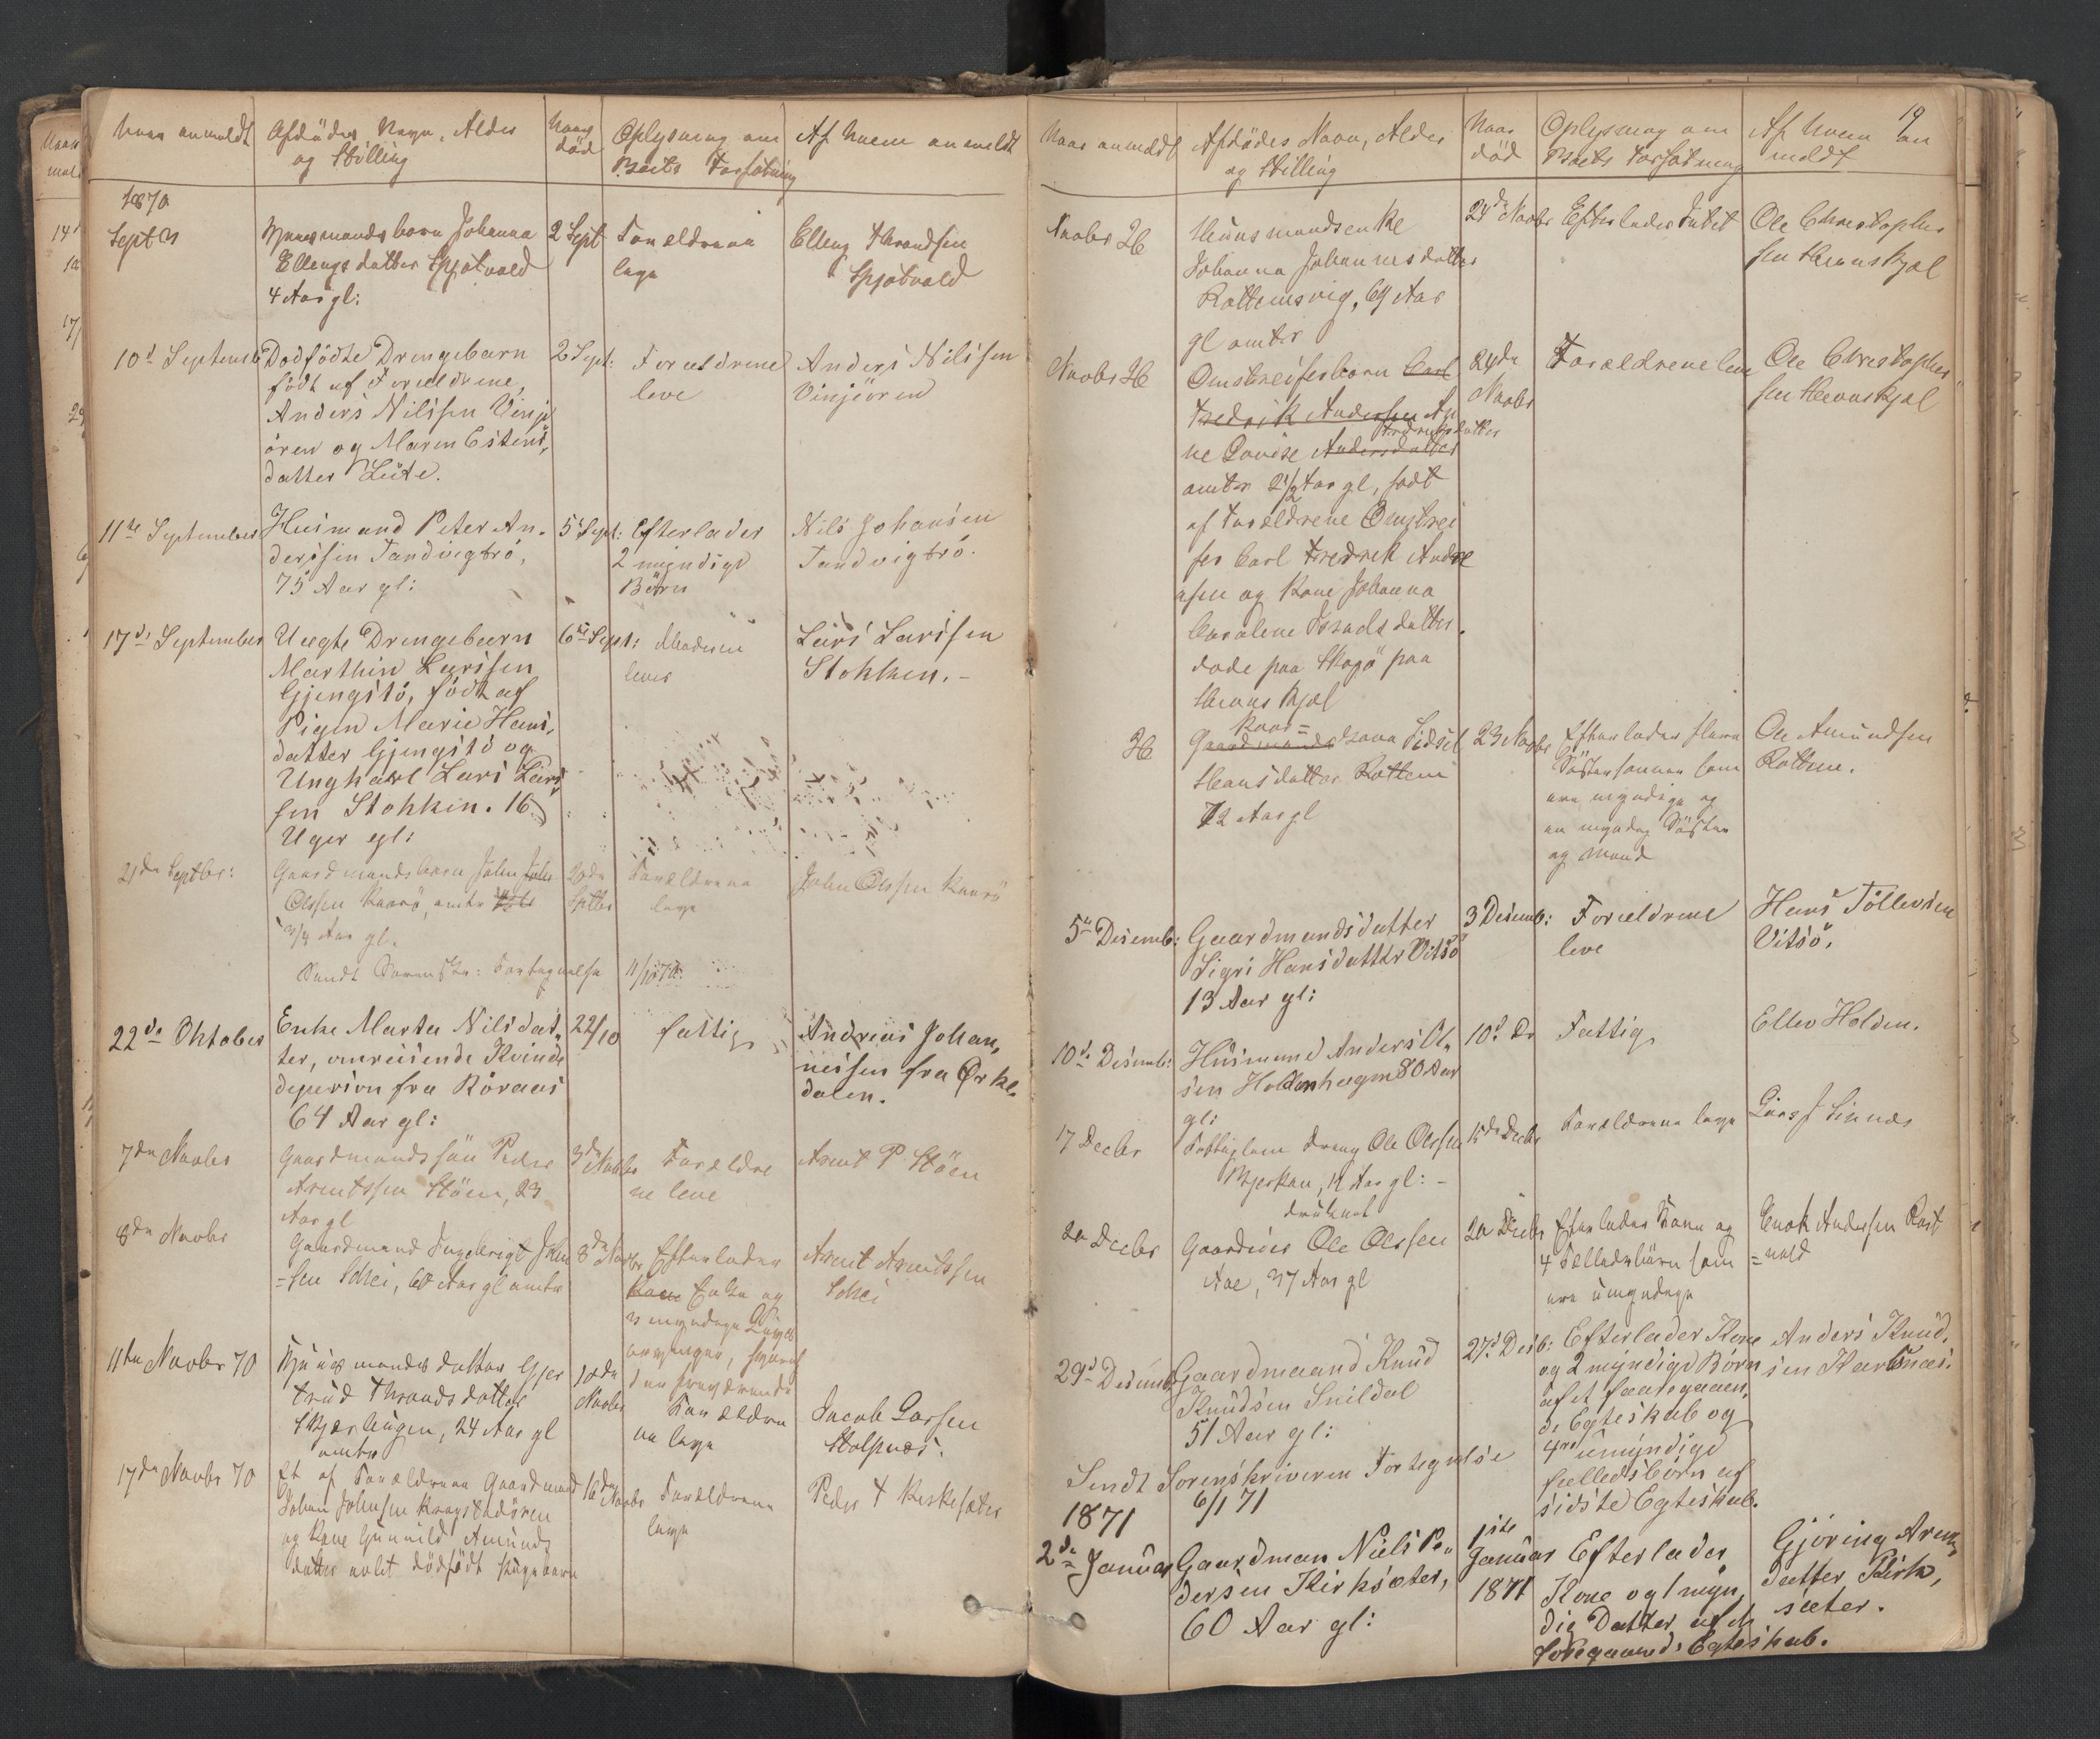 Naar anmeldt
Afdödes Navn, Alder
og Stilling
Naar
död
Oplysning om
Boets Forfatning
Af hvem anmeldt
1870
Sept 3
Huusmandsbarn Johanna
Ellengsdatter Spjøtvold
4 Aar gl:
2 Sept
Forældrene
leve
Elling Throndsen
Spjøtvold
10d September
Dödfödte Drengebarn
födt af Forældrene,
Anders Nilssen Vinje
ören og Maren Estens,
datter Lute.
2 Sept:
Forældrene
leve
Anders Nilssen
Vinjeören
11te September
Husmand Peter An-
derssen Tandvigtrö,
75 Aar gl:
5 Sept:
Efterlader
2 myndige
Börn
Nils Johansen
Tandvigtrö.
17de September
Uegte Drengebarn
Marthin Larssen
Gjengstö, födt af
Pigen Marie Hans,
datter Gjengstö og
Ungkarl Lars Lars
sen Stohken. 16
Uger gl:
6te Sept:
Moderen
lever
Lars Larssen
Stohken. -
21de Septbr:
Gaardmandsbarn John John
Olssen Kaarö, omtr
3/4 Aar gl.
20de
Septbr
Forældrene
leve
John Olssen Kaarö
Sendt Sorenskr: Fortegnelse 11/10 70.
22de Oktober
Enke Marta Nilsdat,
ter, omreisende Kvinde
deperson fra Röraas
64 Aar gl:
22/10
fattig
Andreas Johan,
nessen fra Orke,
dalen.
7de Novbr
Gaardmandssön Peder
Arentssen Stöen, 23
Aar gl
3de
Novbr
Forældre
ne leve
Arent P. Stöen
8de Novbr
Gaardmand Ingebrigt John
=sen Schei, 60 Aar gl omtr
3de Novbr
Efterlader
Kone Enke og
3 myndige
Arent Arentssen
Schei
11te Novbr 70
Huusmandsdatter Gjer
trud Throndsdatter
Skjærlaugen, 24 Aar gl
omtr
10de
Novbr
Forældre
ne leve
Jacob Larsen
Stolpnæs.
17de Novbr 70
Et af Forældrene Gaardmand
Johan Johnsen Kragstadören
og Kone Gunnild Amunds
datter avlet dödfödt Pigebarn
16de
Novbr
Forældrene
leve
Peder T Kirkesæter
19
Naar anmeldt
Afdödes Navn, Alder
og Stilling
Naar
död
Oplysning om
Boets Forfatning
Af hvem an
meldt
Novbr 26
Huusmandsenke
Johanna Johannesdatter
Rottemsvig, 69 Aar
gl omtr
24de Novbr
Efterlader Intet
Ole Christopher
sen Hennskjel
Novbr 26
Omstreiferbarn Carl
Fredrik Andersen An
ne Lovise Andersdatter
Fredriksdatter
omtr 2 1/2 Aar gl, födt
af Forældrene Omstrei
fer Carl Fredrik Andre
asen og Kone Johanna
Caroline Fredsdatter.
döde paa Skagö paa
Hennskjel
24de
Novbr
Forældrene leve
Ole Christopher
sen Hennskjel
26
Kaar=
Gaardmandskone Sidsel
Hansdatter Rottem
72 Aar gl
23 Novbr
Efterlader flere
Söstersönner som
ere myndige og
en myndig Söster
og Mand
Ole Amundsen
Rottem.
5te Desemb:
Gaardmandsdatter
Sigri Hansdatter Vitsö
13 Aar gl:
3 Desemb:
Forældrene
leve
Hans Tollevsen
Vitsö.
10de Desemb:
Husmand Anders Ol,
sen Holdenhagen 80 Aar
gl:
10d Ds
Fattig
Ellev Holden.
17 Decbr
Fattiglem Dreng Ole Olssen
Bjerkan, 12 Aar gl: -
15de Decbr
Forældrene leve
Lars J Sinnes
20 Decbr
druknet
Gaardmd Ole Olssen
Aae, 37 Aar gl
20 Decbr
Efterlader Kone og
4 Fælledsbörn som
ere umyndige
Enok Andersen Rost
=vold
29d Desemb
Gaardmaand Knud
Knudsen Snildal
51 Aar gl:
27d Desb:
Efterlader Kone
og 2 myndige Börn
af et foregaaen,
de Egteskab og
4re umyndige
fælledsbörn af
sidste Egteskab.
Anders Knud,
sen Karlsnæs.
Sendt Sorenskriveren Fortegnelse
6/1 71
1871
2de Januar
Gaardman Niels Pe,
dersen Kirksæter,
60 Aar gl:
1ste
Januar
1871
Efterlader
Kone og 1 myn,
dig Datter af et
foregaaende Egteskab.
Gjöring Arents
datter Kirk,
sæter.